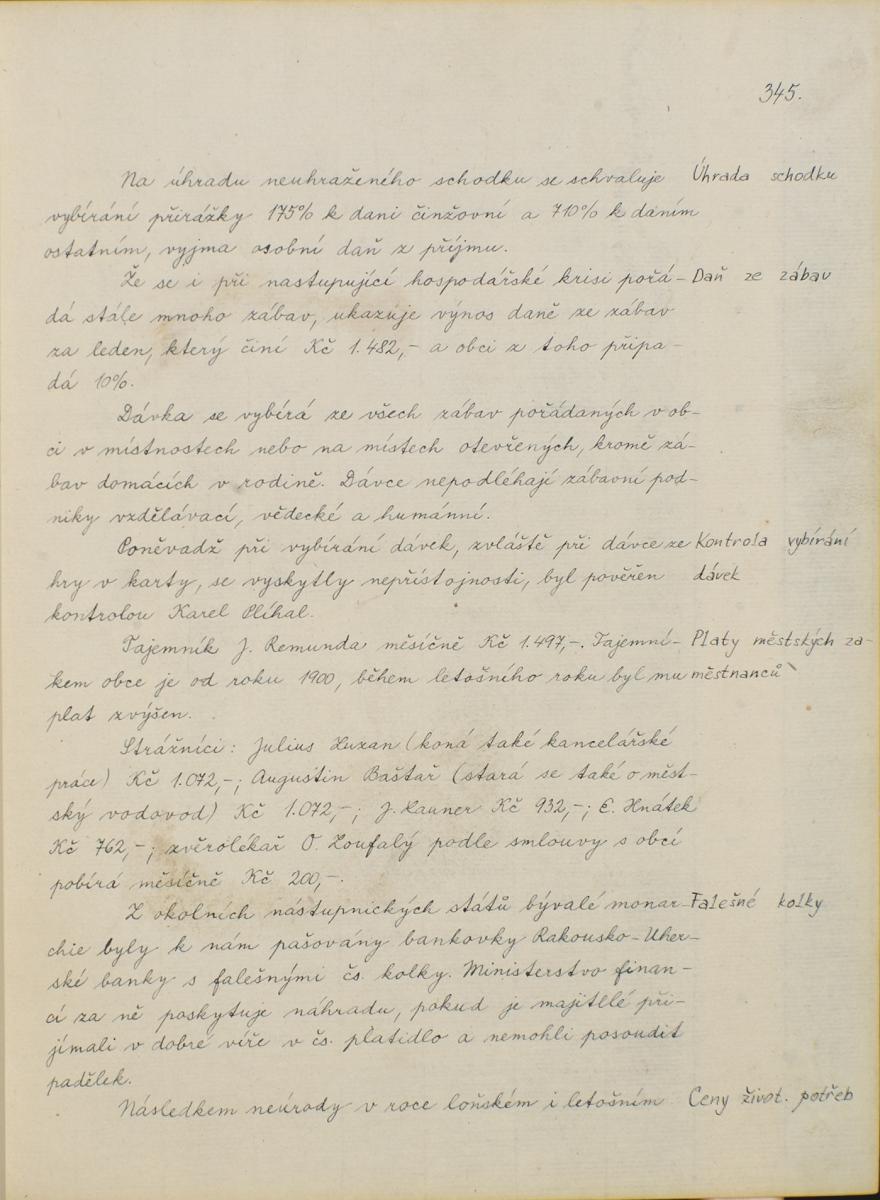 345.
Na úhradu neuhraženého schodku se schvaluje Úhrada schodku
vybírání přirážky 175% k dani činžovní a 710% k daním
ostatním, vyjma osobní daň z příjmu.
Že se i při nastupující hospodářské krisi pořá- Daň ze zábav
dá stále mnoho zábav, ukazuje výnos daně ze zábav
za leden, který činí Kč 1.482,- a obci z toho připa-
dá 10%.
Dávka se vybírá ze všech zábav pořádaných v ob-
ci v místnostech nebo na místech otevřených, kromě zá-
bav domácích v rodině. Dávce nepodléhají zábavní pod-
niky vzdělávací, vědecké a humánní.
Poněvadž při vybírání dávek, zvláště při dávce ze Kontrola vybírání
hry v karty, se vyskytly nepřístojnosti, byl pověřen dávek
kontrolou Karel Plíhal.
Tajemník J. Remunda měsíčně Kč 1.497,-. Tajemní- Platy městských za-
kem obce je od roku 1900, během letošního roku byl mu městnanců
plat zvýšen.
Strážníci: Julius Huzan (koná také kancelářské
práce) Kč 1.072,-; Augustin Baštař (stará se také o měst-
ský vodovod) Kč 1.072,-; J. Launer Kč 932,-; E. Hnátek
Kč 762,-; zvěrolékař O. Zoufalý podle smlouvy s obcí
pobírá měsíčně Kč 200,-.
Z okolních nástupnických států bývalé monar- Falešné kolky
chie byly k nám pašovány bankovky Rakousko-Uher-
ské banky s falešnými čs. kolky. Ministerstvo finan-
cí za ně poskytuje náhradu, pokud je majitelé při-
jímali v dobré víře v čs. platidlo a nemohli posoudit
padělek.
Následkem neúrody v roce loňském i letošním Ceny život. potřeb